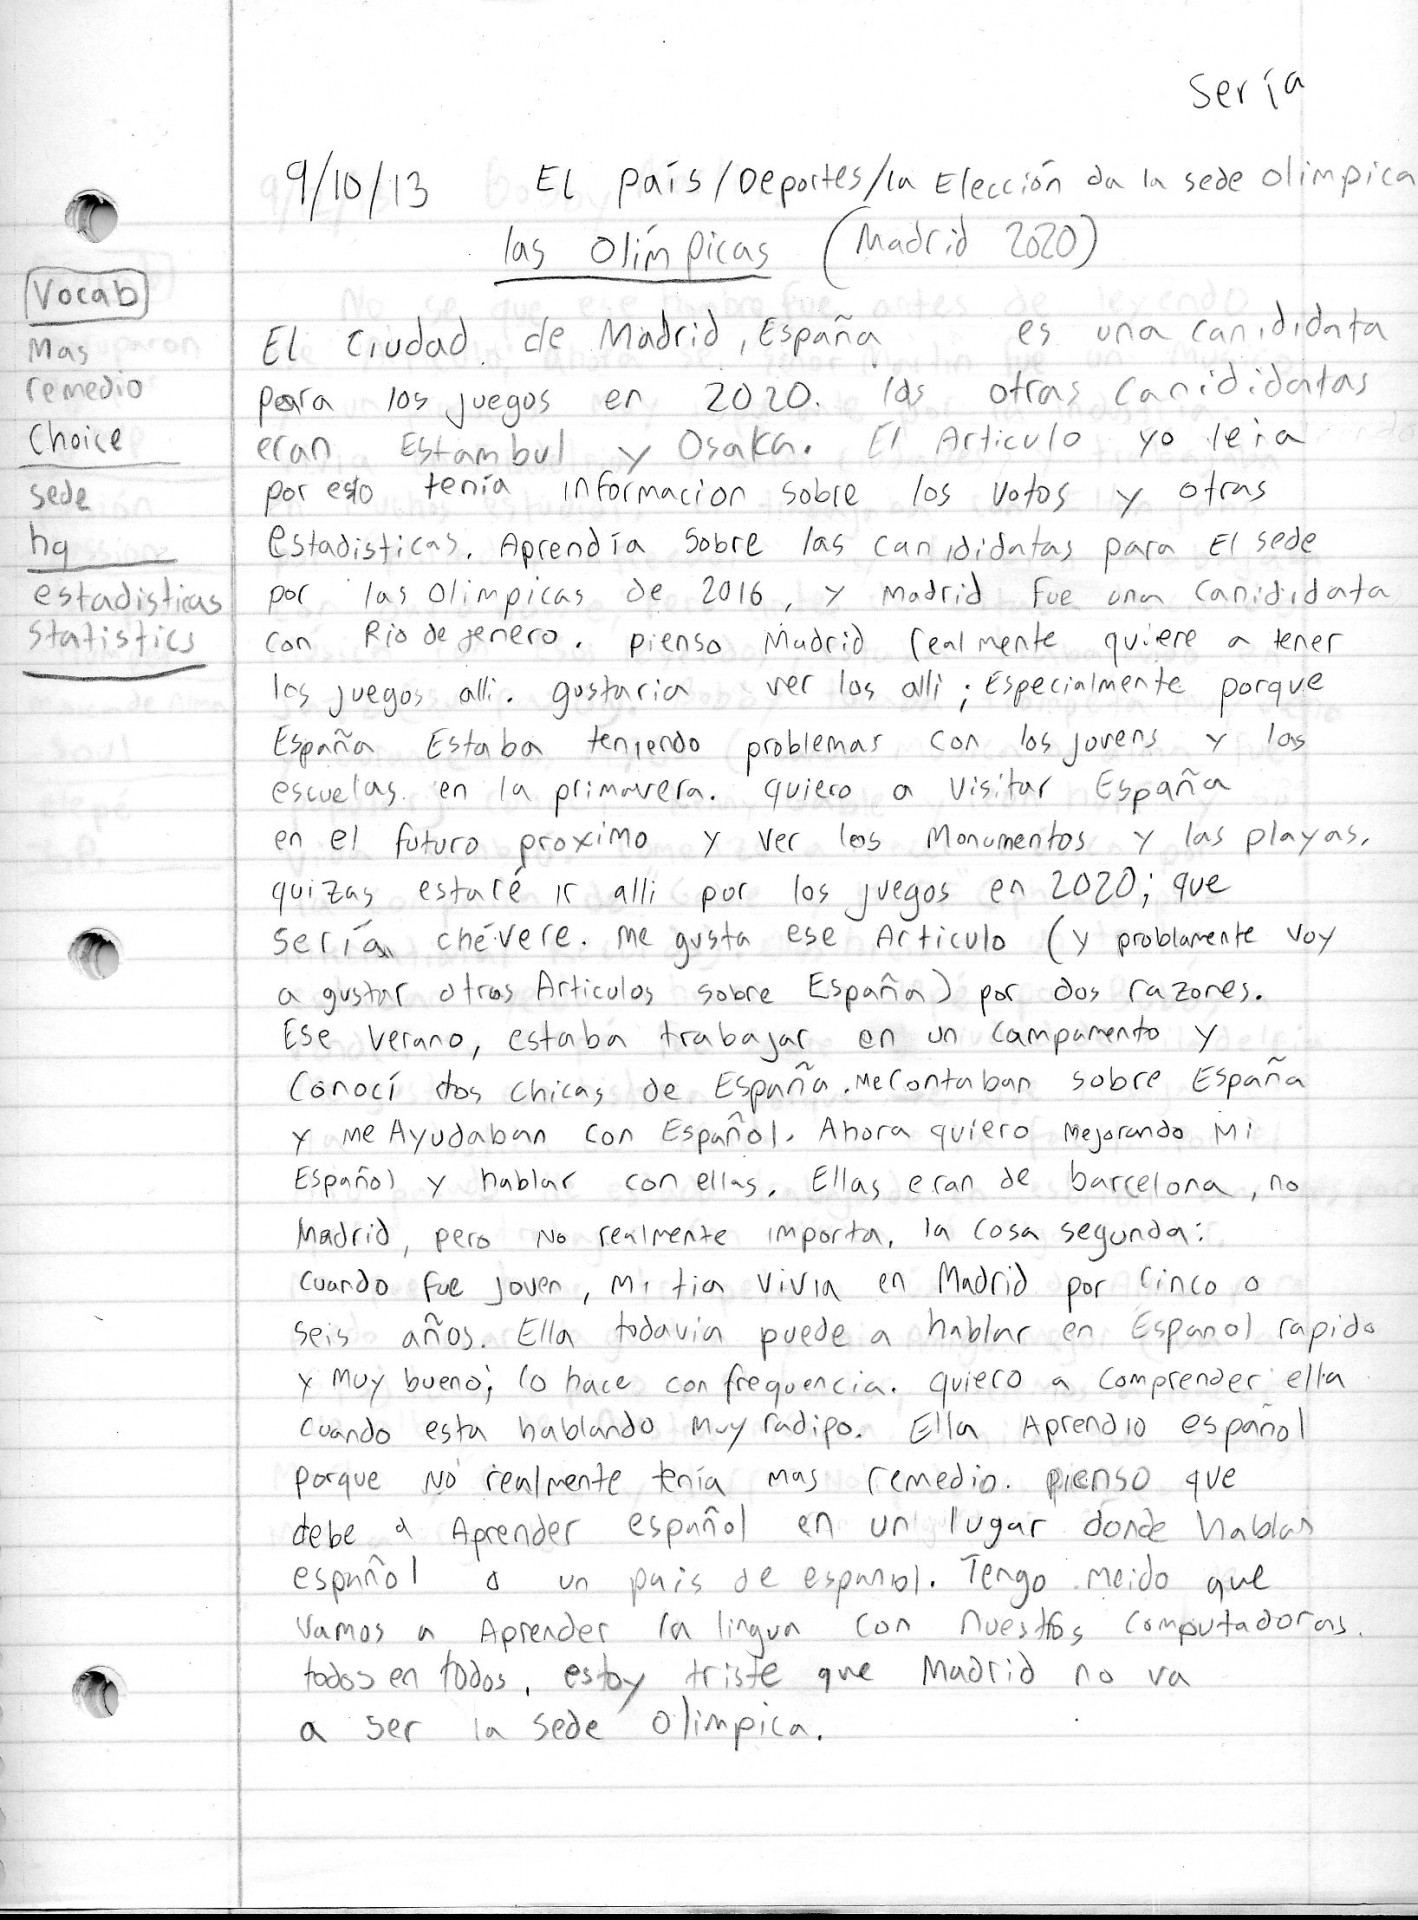 sería
9/10/13 El país/Deportes/la Elección da la sede olimpica
las olímpicas (Madrid 2020)
Vocab
Mas
remedio
Choice
sede
hq
estadisticas
statistics
El Ciudad de Madrid, España es una canididata
para los juegos en 2020. las otras canididatas
eran Estambul y Osaka. El Articulo yo leia
por esto tenía informacion sobre los votos y otras
estadisticas. Aprendía sobre las canididatas para El sede
por las olimpicas de 2016, y Madrid fue una canididata
con Rio de jenero. pienso Madrid realmente quiere a tener
los juegos alli. gustaria ver los alli; Especialmente porque
España Estaba teniendo problemas con los jovens y las
escuelas en la primavera. quiero a visitar España
en el futuro proximo y ver los Monumentos y las playas.
quizas estaré ir alli por los juegos en 2020; que
sería chévere. me gusta ese Articulo (y problamente voy
a gustar otros Articulos sobre España) por dos razones.
Ese verano, estaba trabajar en un campamento y
conocí dos chicas de España. Me contaban sobre España
y me Ayudaban con Español. Ahora quiero mejorando mi
Español y hablar con ellas. Ellas eran de barcelona, no
Madrid, pero no realmente importa. la cosa segunda:
cuando fue joven, mi tia vivia en Madrid por cinco o
seis años. Ella todavia puede a hablar en Espanol rapido
y muy bueno; lo hace con frequencia. quiero a comprender ella
cuando esta hablando muy radipo. Ella Aprendio español
porque no realmente tenía mas remedio. pienso que
debe a Aprender español en un lugar donde hablan
español o un pais de espaniol. Tengo meido que
vamos a Aprender la lingua con nuestros computadoras.
todos en todos, estoy triste que Madrid no va
a ser la sede olimpica.